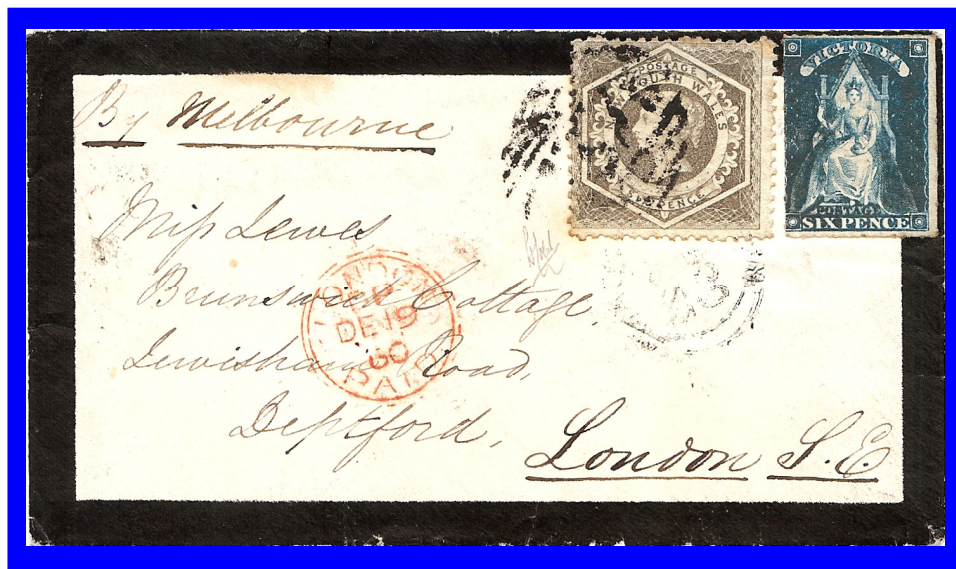 By Melbourne
POSTAGE
SOUTH WALES
PENCE
VICTORIA
POSTAGE
SIX PENCE
Miss Lewes
Brunswick Cottage,
Lewisham Road,
Deptford,
London S.E.
LONDON
DE 19
60
PAID